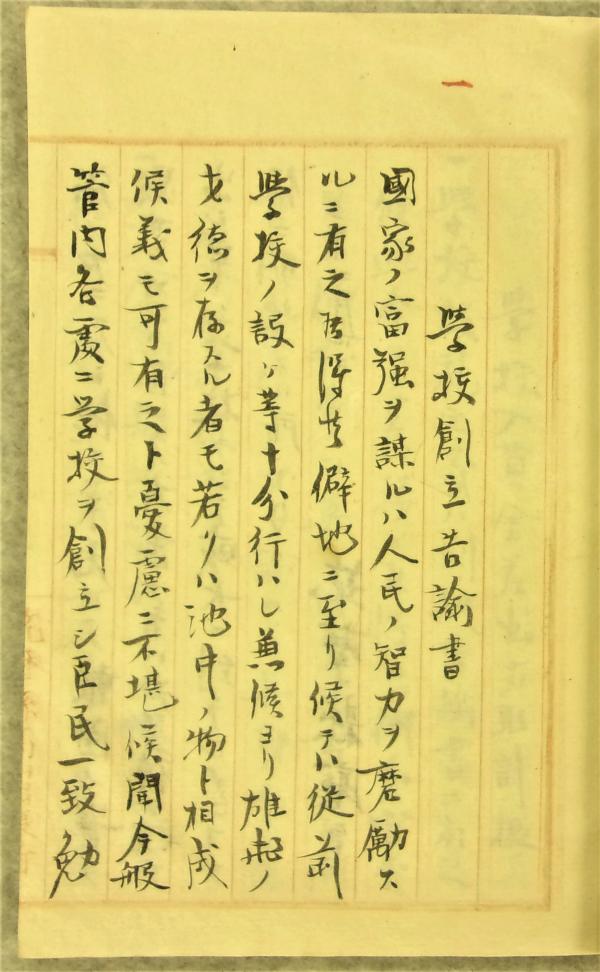 一
學校創立告諭書
國家ノ富强ヲ謀ルハ人民ノ智力ヲ磨勵ス
ルニ有之 僻地ニ至リ候テハ從前
學校ノ設ケ等十分行ハレ兼候ヨリ雄飛ノ
才德ヲ存スル者モ若クハ池中ノ物ト相成
候義モ可有之ト憂慮ニ不堪候間今般
管内各處ニ学校ヲ創立シ臣民一致勉